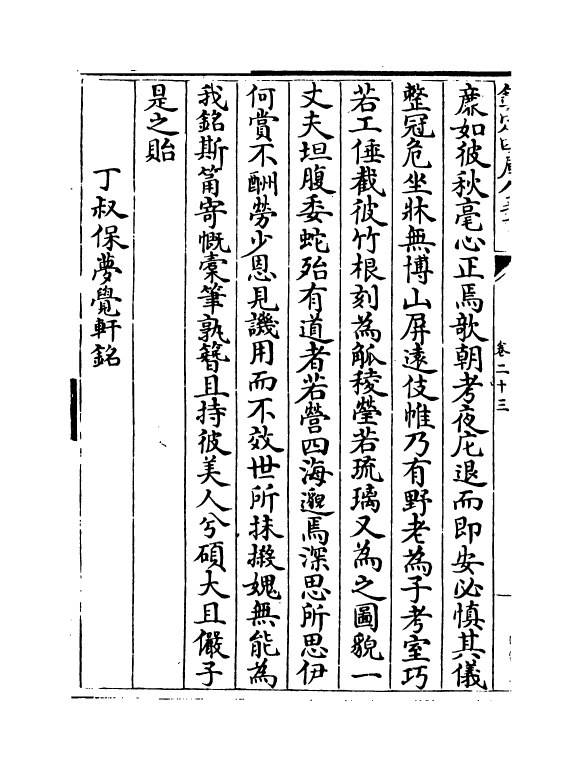 欽定四庫全書
卷二十三
麋如彼秋毫心正焉歌朝考夜庀退而即安必慎其儀
整冠危坐牀無博山屏遠伎帷乃有野老為子考室巧
若工倕截彼竹根刻為觚稜瑩若琉璃又為之圖貌一
丈夫坦腹委蛇殆有道者若營四海邈焉深思所思伊
何賞不酬勞少恩見譏用而不效世所抹摋媿無能為
我銘斯筩寄慨橐筆孰簪且持彼美人兮碩大且儼子
是之貽
丁叔保夢覺軒銘